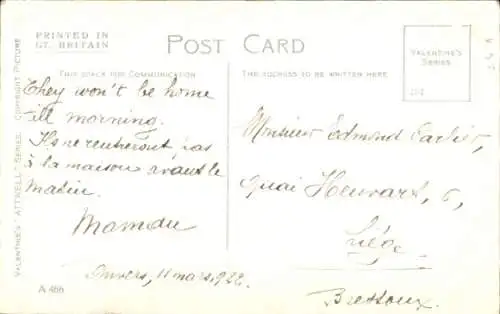 PRINTED IN
GT. BRITAIN
POST CARD
VALENTINE'S
SERIES
THIS SPACE FOR COMMUNICATION
THE ADDRESS TO BE WRITTEN HERE
VALENTINE'S "ATTWELL" SERIES. COPYRIGHT PICTURE
They won't be home
till morning.
Ils ne rentreront pas
à la maison avant le
Matin.
Anvers, 11 mars 1922.
A 466
Monsieur Edmond
Quai 6,
Liége
Bressoux.